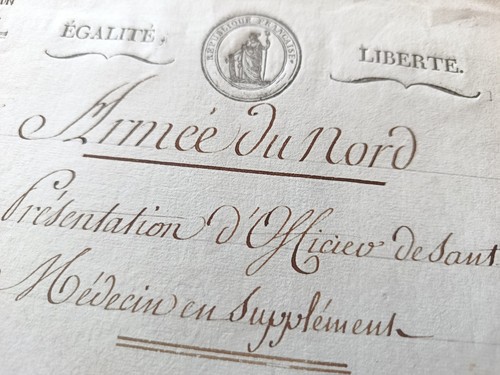 ÉGALITÉ.
RÉPUBLIQUE FRANÇAISE
LIBERTÉ.
Armée du Nord
Présentation d'Officier de sant
Médecin en Supplément